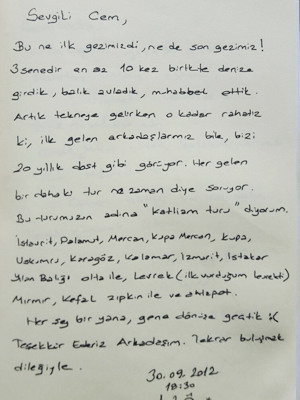 Sevgili Cem,
Bu ne ilk gezimizdi, ne de son gezimiz!
3 senedir en az 10 kez birlikte denize
girdik, balık avladık, muhabbet ettik.
Artık tekneye gelirken o kadar rahatız
ki, ilk gelen arkadaşlarımız bile, bizi
20 yıllık dost gibi görüyor. Her gelen
bir dahaki tur ne zaman diye soruyor.
Bu turumuzun adına "katliam turu" diyorum.
İstavrit, Palamut, Mercan, Kupa Mercan, Kupa,
Uskumru, Karagöz, Kalamar, İzmarit, Istakoz
Yılan Balığı olta ile, Levrek (ilk vurduğum levrekti)
Mırmır, Kefal zıpkın ile ve ahtapot.
Her şey bir yana, gene dönüşe geçtik :(
Teşekkür Ederiz Arkadaşım. Tekrar buluşmak
dileğiyle.
30.09.2012
18:30